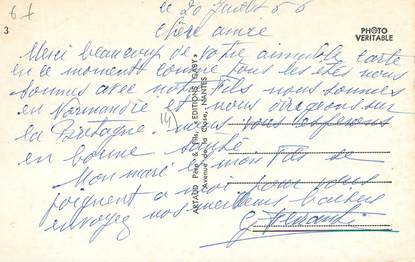 67
3
le 20 Juillet 56
chère amie
PHOTO
VERITABLE
Merci beaucoup de votre aimable carte
en ce moment comme tous les étés nous
sommes avec notre fils nous sommes
en Normandie et nous dirigeons sur
la Bretagne. nous vous espérons
en bonne santé
Mon mari & mon fils se
joignent a moi pour vous
envoyer nos meilleurs baisers
(14)
ARTAUD Père & Fils, EDITIONS GABY
Avenue de la Close, NANTES